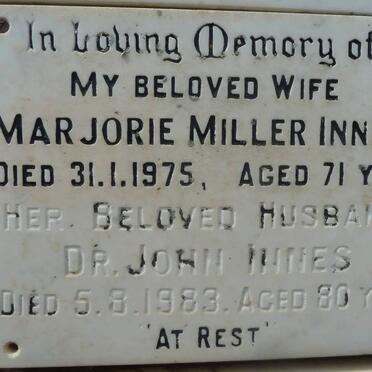 In Loving Memory of
MY BELOVED WIFE
MARJORIE MILLER INN
DIED 31.1.1975, AGED 71 Y
HER BELOVED HUSBAN
DR. JOHN INNES
DIED 5.8.1983. AGED 80 Y
"AT REST"